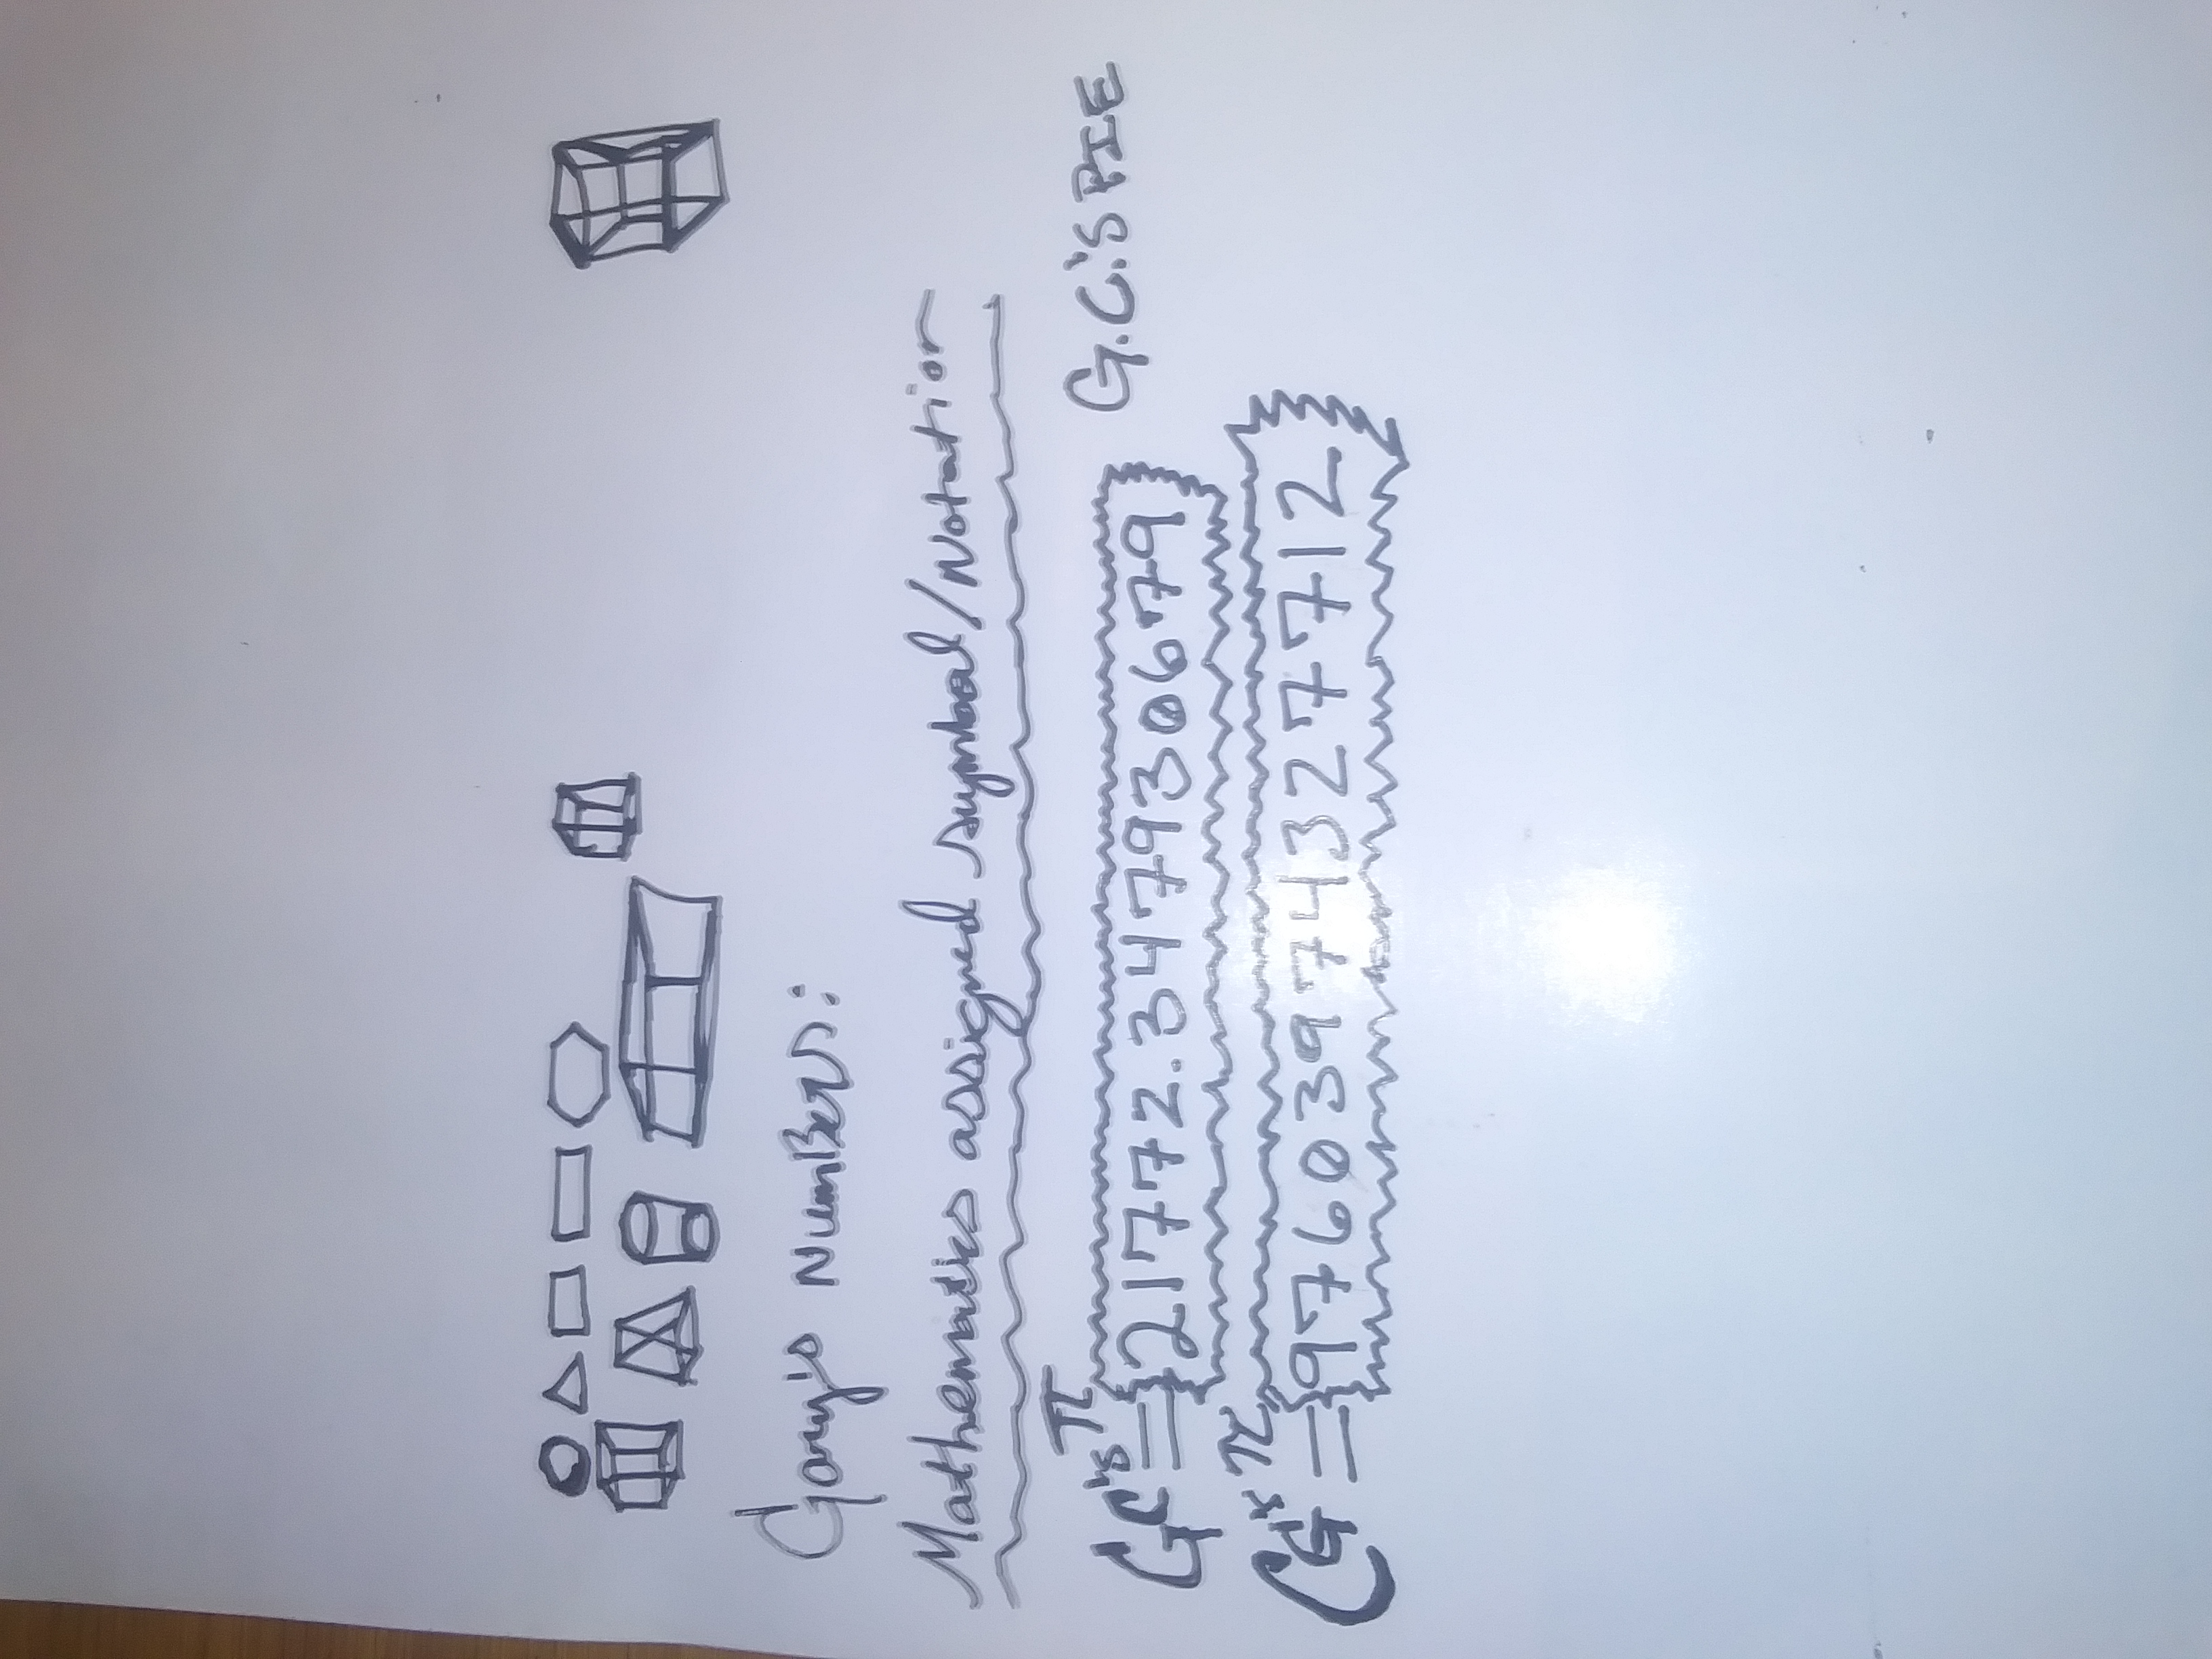 Gary's NumBers:
Mathematics assigned symbol/Notation
GC'sπ = 21772.347930679
G.C.'S PIE
CG'sπ = 97603974327712